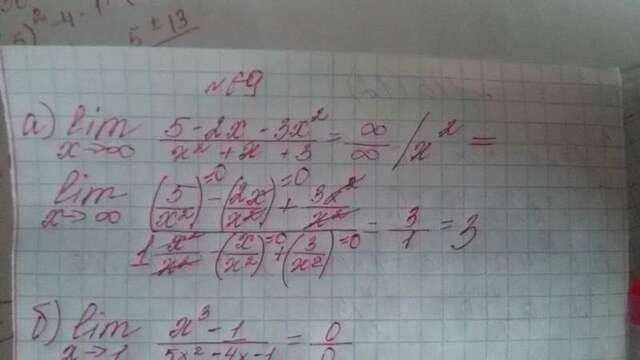 5)² - 4 · 1
5 ± 13
№ 69
а) lim x→∞ (5 - 2x - 3x²)/(x² + x + 3) = ∞/∞ /x² =
lim x→∞ ((5/x²)=0 - (2x/x²)=0 + 3x²/x²)/(1 x²/x² - (x/x²)=0 + (3/x²)=0) = 3/1 = 3
б) lim x→1 (x³ - 1)/(5x² - 4x - 1) = 0/0